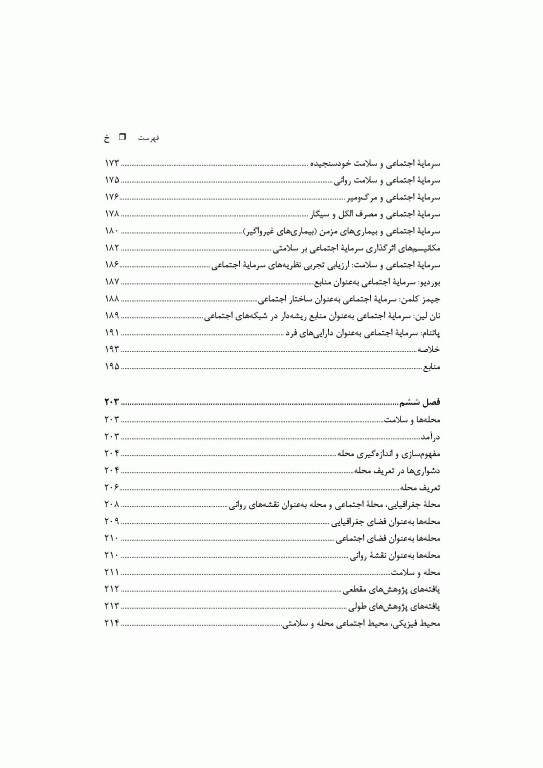 فهرست ❒ خ
سرمایۀ اجتماعی و سلامت خودسنجیده ........ ۱۷۳
سرمایۀ اجتماعی و سلامت روانی ........ ۱۷۵
سرمایۀ اجتماعی و مرگ‌ومیر ........ ۱۷۶
سرمایۀ اجتماعی و مصرف الکل و سیگار ........ ۱۷۸
سرمایۀ اجتماعی و بیماری‌های مزمن (بیماری‌های غیرواگیر) ........ ۱۸۰
مکانیسم‌های اثرگذاری سرمایۀ اجتماعی بر سلامتی ........ ۱۸۲
سرمایۀ اجتماعی و سلامت: ارزیابی تجربی نظریه‌های سرمایۀ اجتماعی ........ ۱۸۶
بوردیو: سرمایۀ اجتماعی به‌عنوان منابع ........ ۱۸۷
جیمز کلمن: سرمایۀ اجتماعی به‌عنوان ساختار اجتماعی ........ ۱۸۸
نان لین: سرمایۀ اجتماعی به‌عنوان منابع ریشه‌دار در شبکه‌های اجتماعی ........ ۱۸۹
پاتنام: سرمایۀ اجتماعی به‌عنوان دارایی‌های فرد ........ ۱۹۱
خلاصه ........ ۱۹۳
منابع ........ ۱۹۵
فصل ششم ........ ۲۰۳
محله‌ها و سلامت ........ ۲۰۳
درآمد ........ ۲۰۳
مفهوم‌سازی و اندازه‌گیری محله ........ ۲۰۴
دشواری‌ها در تعریف محله ........ ۲۰۴
تعریف محله ........ ۲۰۶
محلۀ جغرافیایی، محلۀ اجتماعی و محله به‌عنوان نقشه‌های روانی ........ ۲۰۸
محله‌ها به‌عنوان فضای جغرافیایی ........ ۲۰۹
محله‌ها به‌عنوان فضای اجتماعی ........ ۲۱۰
محله‌ها به‌عنوان نقشۀ روانی ........ ۲۱۰
محله و سلامت ........ ۲۱۱
یافته‌های پژوهش‌های مقطعی ........ ۲۱۲
یافته‌های پژوهش‌های طولی ........ ۲۱۳
محیط فیزیکی، محیط اجتماعی محله و سلامتی ........ ۲۱۴